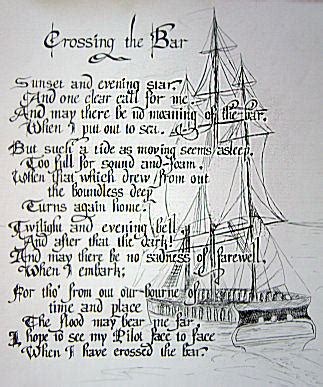 Crossing the Bar
Sunset and evening star,
And one clear call for me.
And may there be no moaning of the bar.
When I put out to sea.
But such a tide as moving seems asleep,
Too full for sound and foam,
When that which drew from out
the boundless deep
Turns again home.
Twilight and evening bell,
And after that the dark!
And may there be no sadness of farewell,
When I embark;
For tho' from out our bourne of
time and place
The flood may bear me far,
I hope to see my Pilot face to face
When I have crossed the bar.